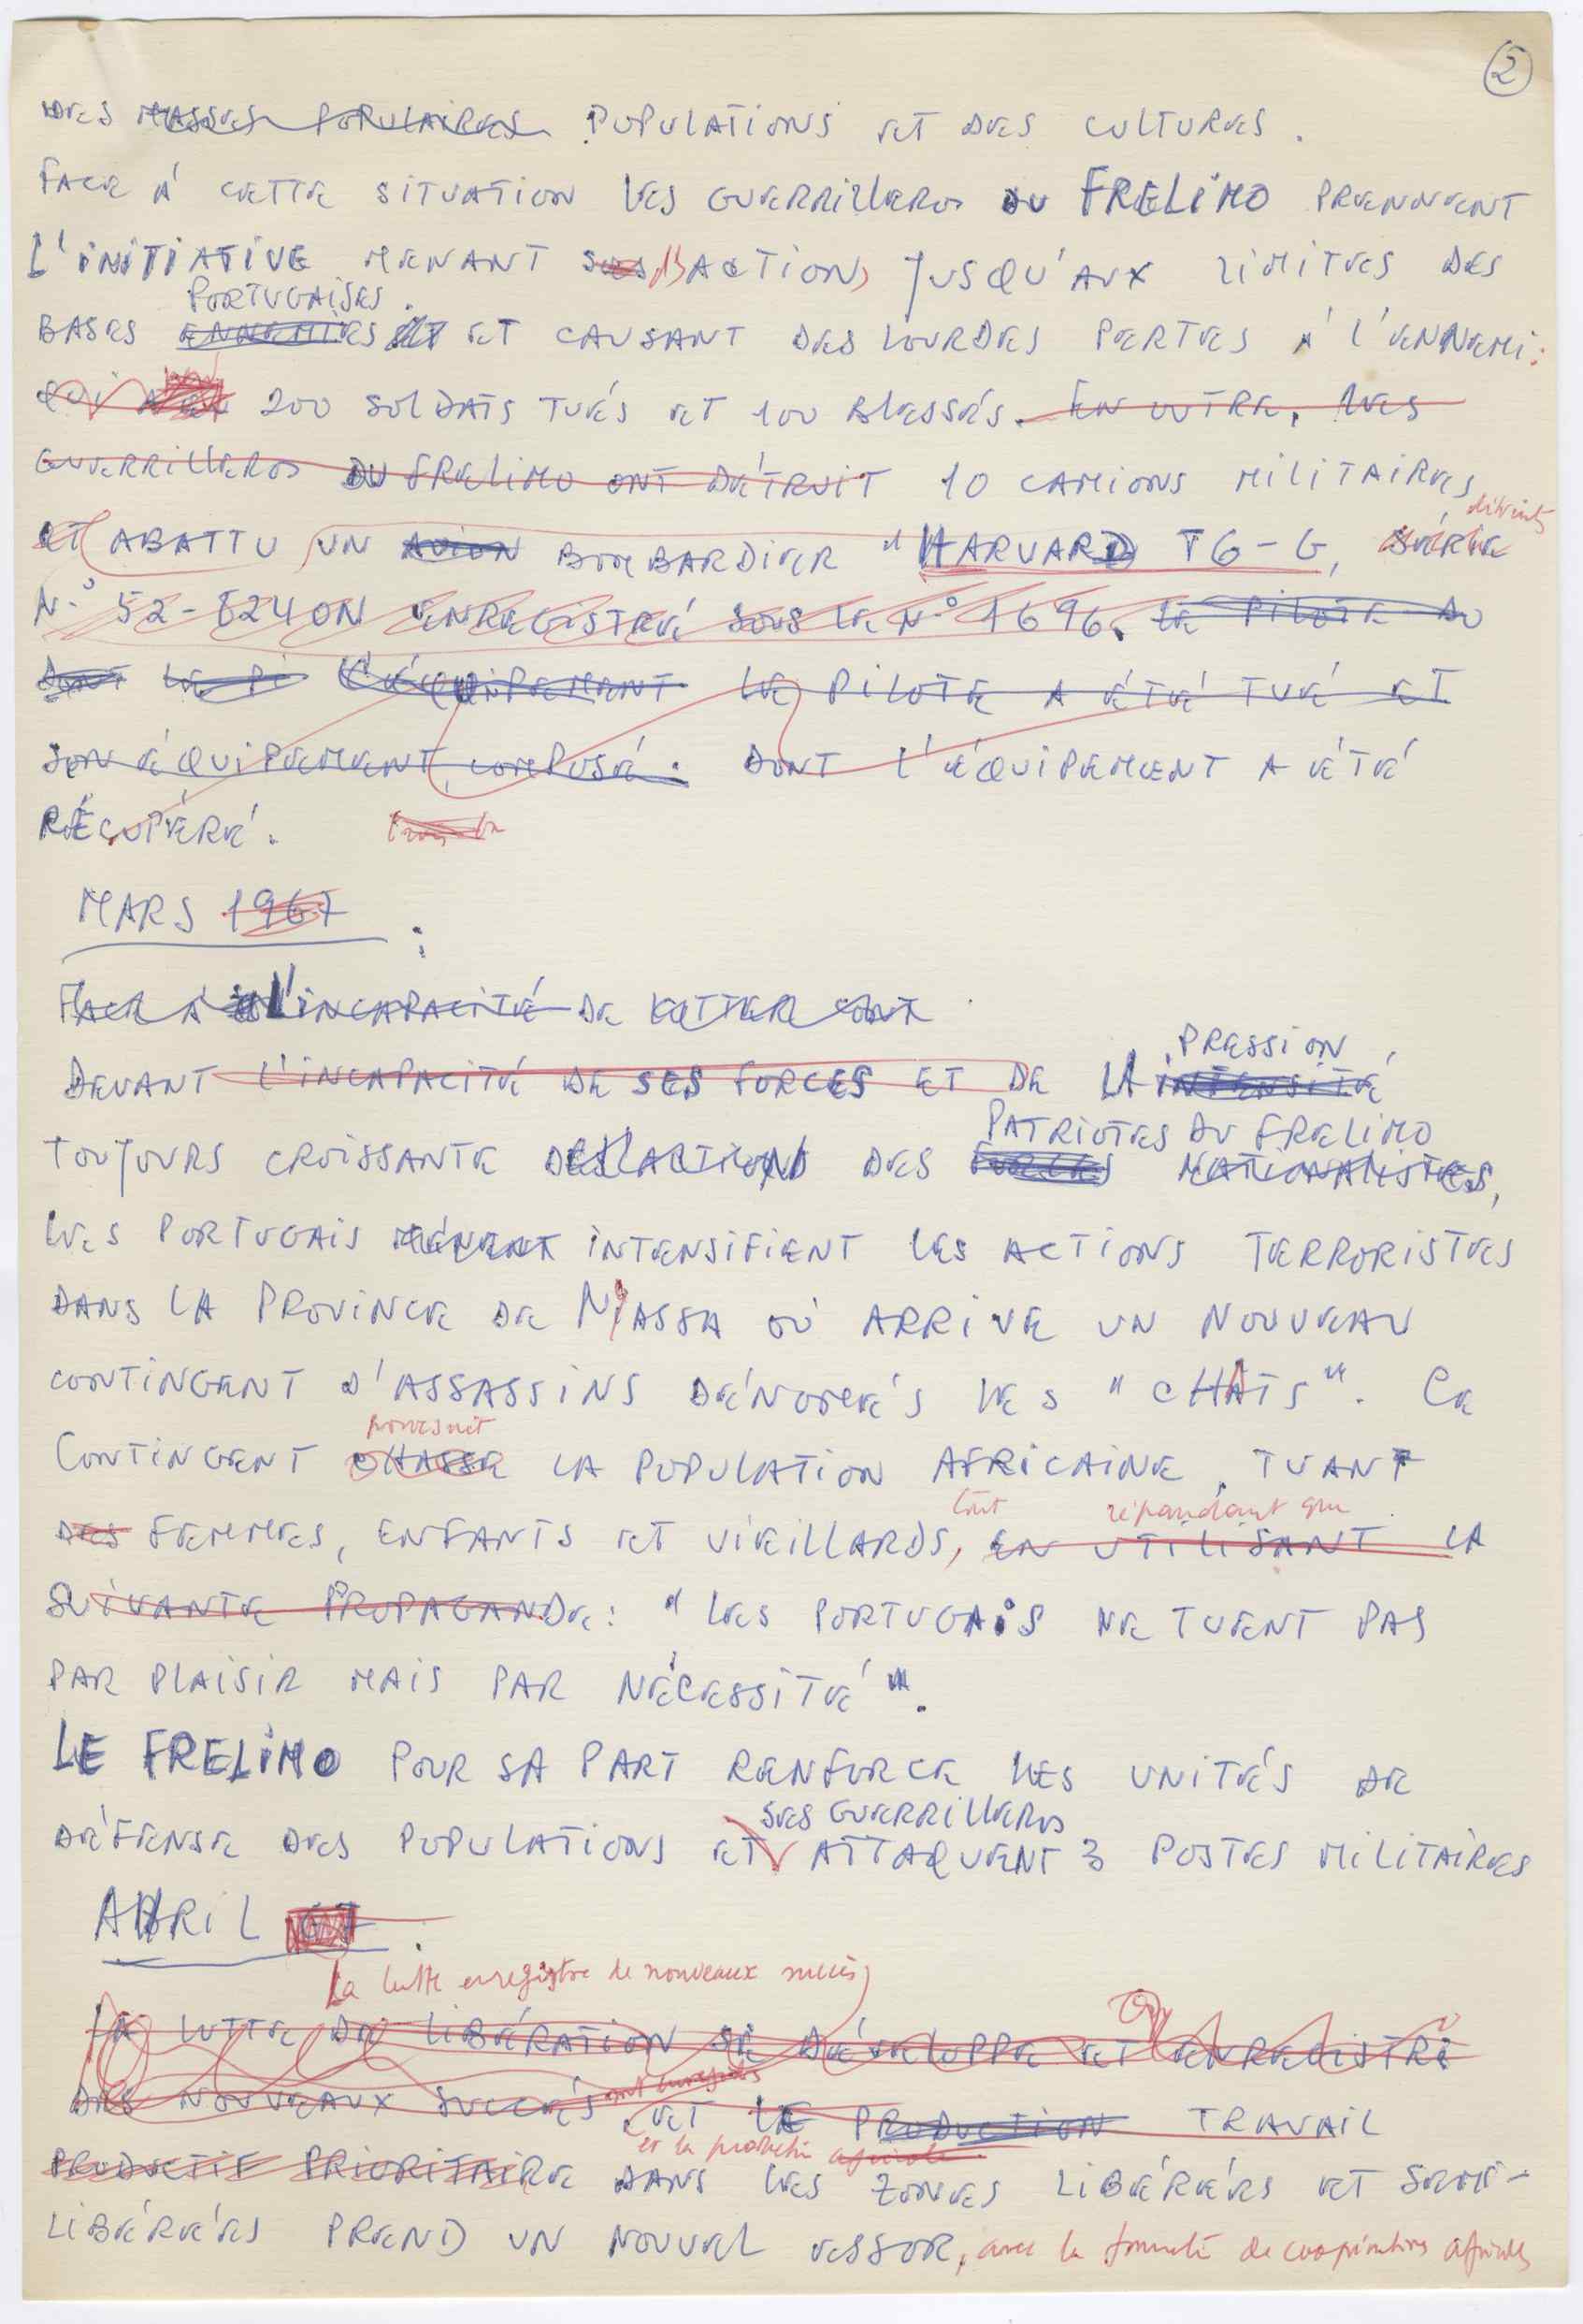 2
DES MASSES POPULAIRES POPULATIONS ET DES CULTURES.
FACE À CETTE SITUATION LES GUERRILLEROS DU FRELIMO PRENNENT
L'INITIATIVE MENANT SES ACTIONS JUSQU'AUX LIMITES DES
PORTUGAISES
BASES ENNEMIES ET CAUSANT DES LOURDES PERTES À L'ENNEMI:
QUI A 200 SOLDATS TUÉS ET 100 BLESSÉS. EN OUTRE, LES
GUERRILLEROS DU FRELIMO ONT DÉTRUIT 10 CAMIONS MILITAIRES,
détruits
ET ABATTU UN AVION BOMBARDIER "HARVARD T6-G, SÉRIE
N.º 52-8240N ENREGISTRÉ SOUS LE Nº 1696. LE PILOTE DO
DONT LE PI L'ÉQUIPEMENT LE PILOTE A ÉTÉ TUÉ ET
SON ÉQUIPEMENT COMPOSÉ. DONT L'ÉQUIPEMENT A ÉTÉ
RÉCUPÉRÉ.
MARS 1967 :
FACE À L'INCAPACITÉ DE LUTTER CONT
PRESSION
DEVANT L'INCAPACITÉ DE SES FORCES ET DE LA INTENSITÉ
PATRIOTES DU FRELIMO
TOUJOURS CROISSANTE DES ACTIONS DES FORCES NATIONALISTES,
LES PORTUGAIS MÈNENT INTENSIFIENT LES ACTIONS TERRORISTES
DANS LA PROVINCE DE NIASSA OÙ ARRIVE UN NOUVEAU
CONTINGENT D'ASSASSINS DÉNOMMÉS LES "CHATS". CE
poursuit
CONTINGENT CHASSE LA POPULATION AFRICAINE, TUANT
tout répandant que
DES FEMMES, ENFANTS ET VIEILLARDS, EN UTILISANT LA
SUIVANTE PROPAGANDE: "LES PORTUGAIS NE TUENT PAS
PAR PLAISIR MAIS PAR NÉCESSITÉ".
LE FRELIMO POUR SA PART RENFORCE LES UNITÉS DE
SES GUERRILLEROS
DÉFENSE DES POPULATIONS ET ATTAQUENT 3 POSTES MILITAIRES
AVRIL 67 :
La lutte enregistre de nouveaux succès
LA LUTTE DE LIBÉRATION SE DÉVELOPPE ET ENREGISTRE
DES NOUVEAUX SUCCÈS ET LE PRODUCTION TRAVAIL
et la production agricole
PRODUCTIF PRIORITAIRE DANS LES ZONES LIBÉRÉES ET SEMI-
LIBÉRÉES PREND UN NOUVEL ESSOR, avec la formation de coopératives agricoles